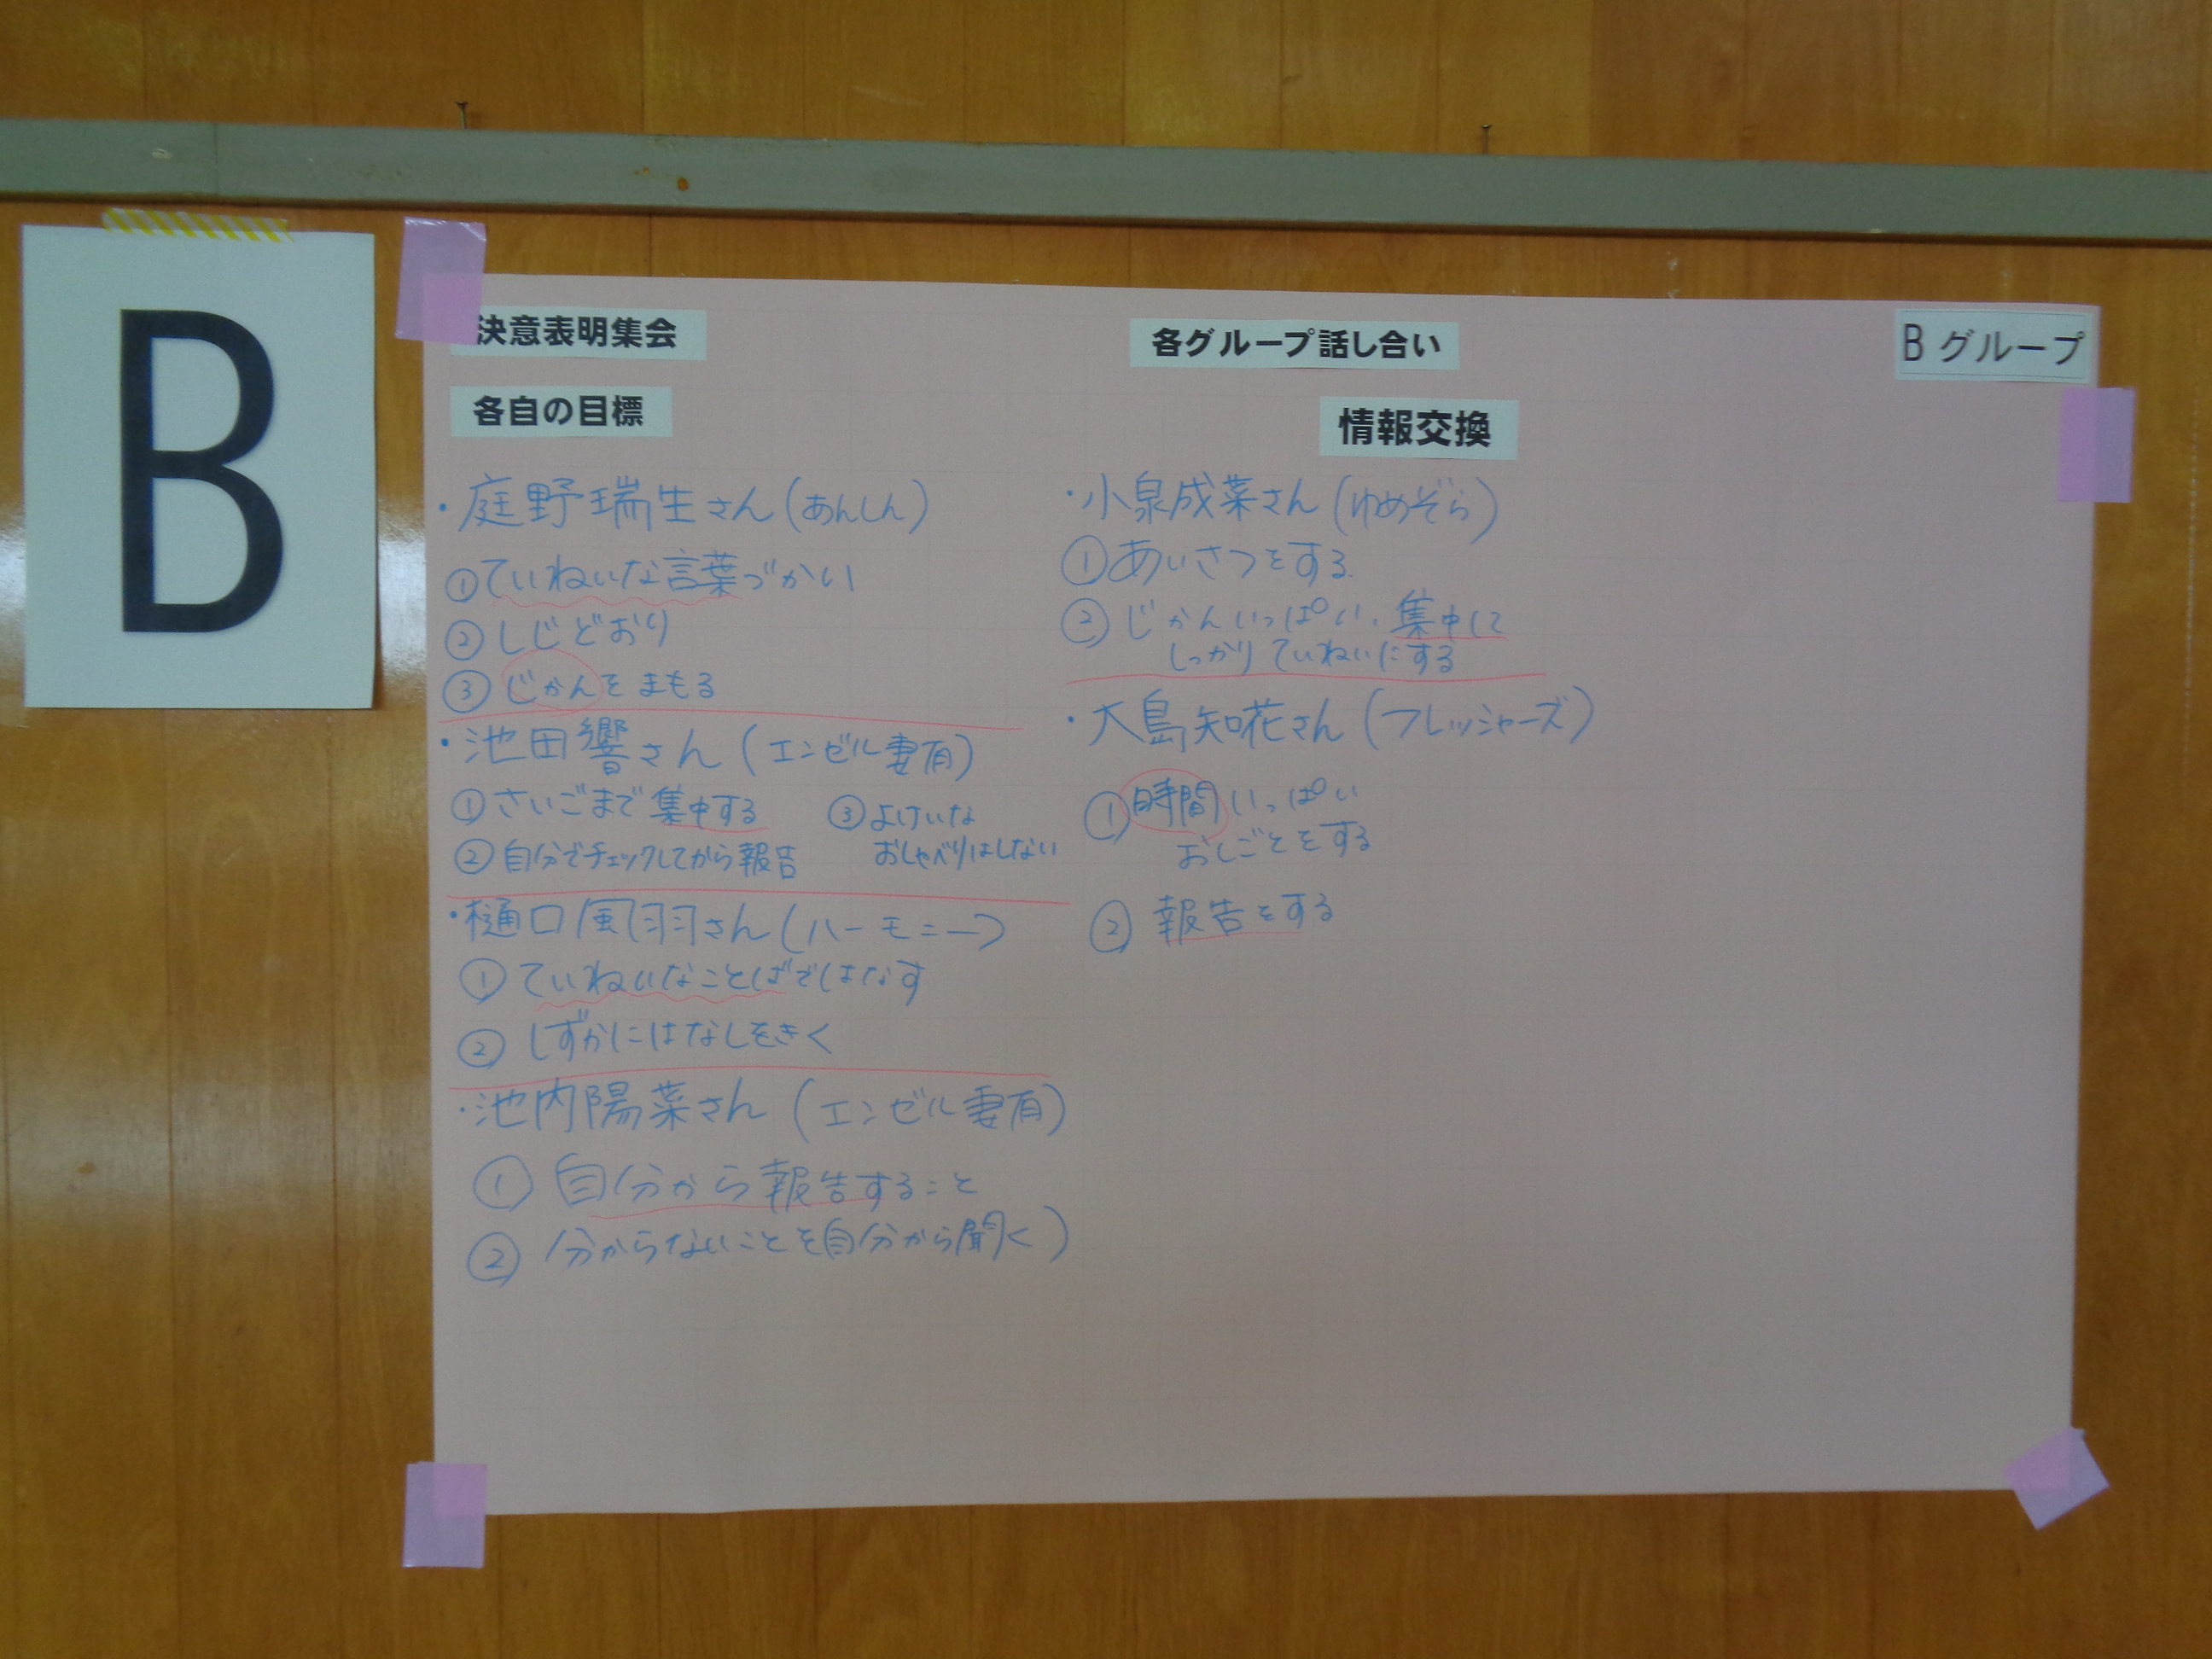 B
決意表明集会
各グループ話し合い
Bグループ
各自の目標
情報交換
・庭野瑞生さん(あんしん)
①ていねいな言葉づかい
②しじどおり
③じかんをまもる
・池田響さん(エンゼル妻有)
①さいごまで集中する
②自分でチェックしてから報告
③よけいな
おしゃべりはしない
・樋口風羽さん(ハーモニー)
①ていねいなことばではなす
②しずかにはなしをきく
・池内陽菜さん(エンゼル妻有)
①自分から報告すること
②分からないことを自分から聞く)
・小泉成菜さん(ゆめぞら)
①あいさつをする
②じかんいっぱい、集中して
しっかりていねいにする
・大島知花さん(フレッシャーズ)
①時間いっぱい
おしごとをする
②報告をする